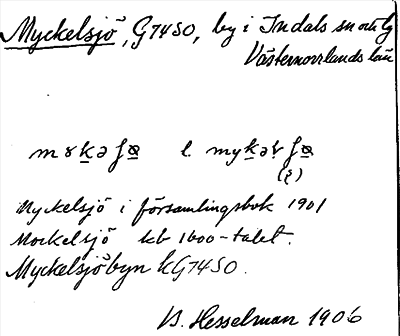 Myckelsjö, G7450, by i Indals sn och tg
Västernorrlands län
l.
Myckelsjö i församlingsbok 1901
Mockelsjö kb 1600-talet.
Myckelsjöbyn kG7450.
B. Hesselman 1906